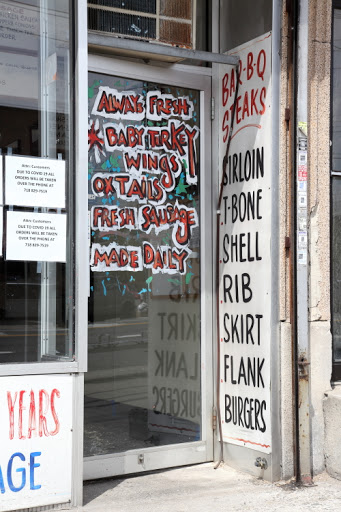 ALWAYS FRESH
BABY TURKEY
WINGS
OXTAILS
FRESH SAUSAGE
MADE DAILY
BAR-B-Q
STEAKS
SIRLOIN
T-BONE
SHELL
RIB
SKIRT
FLANK
BURGERS
Attn: Customers
DUE TO COVID 19 ALL
ORDERS WILL BE TAKEN
OVER THE PHONE AT
718 829-7519
Attn: Customers
DUE TO COVID 19 ALL
ORDERS WILL BE TAKEN
OVER THE PHONE AT
718 829-7519
YEARS
AGE
RIB
SKIRT
FLANK
BURGERS